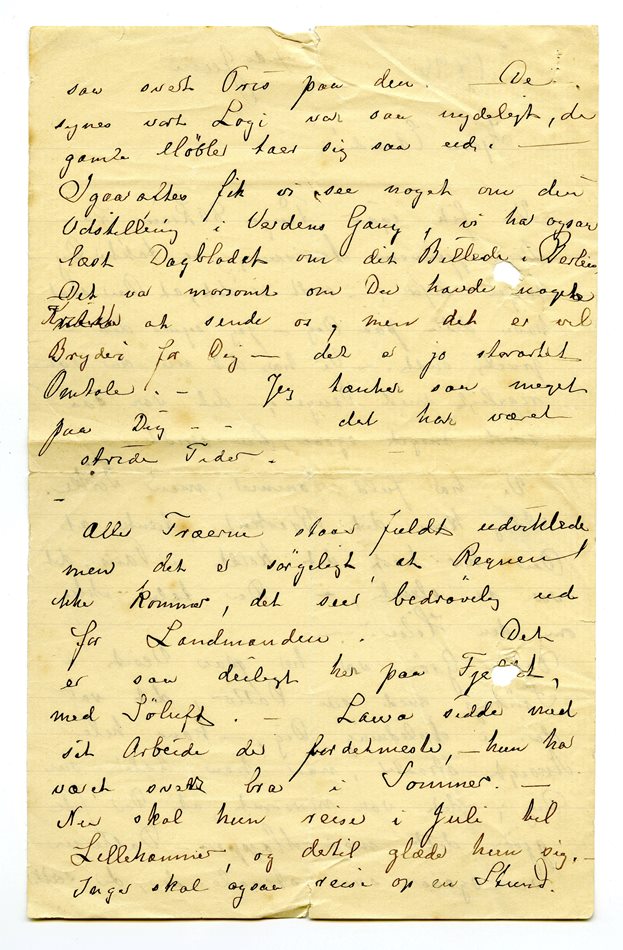 saa svært Pris paa den. — De
synes vort Logi var saa nydeligt, de
gamle Møbler taer sig saa ud. —
Igaaraftes fik vi see noget om din
Udstilling i Verdens Gang, vi har ogsaa
læst Dagbladet om dit Billede i Berlin
Det var morsomt om Du havde noget
Kritikke at sende os, men det er vel
Bryderi for Dig — det er jo storartet
Omtale. — Jeg tænker saa meget
paa Dig — – det har været
stride Tider. –
–
Alle Træerne staar fuldt udviklede
men det er sørgeligt, at Regnen
ikke kommer, det seer bedrøvelig ud
for Landmanden. . Det
er saa deiligt her paa Fjeldet,
med Søluft. — Laura sidde med
sit Arbeide der fordetmeste, — hun har
været svært bra i Sommer. —
Nu skal hun reise i Juli til
Lillehammer, og dertil glæde hun sig. –
Inger skal ogsaa reise op en Stund.